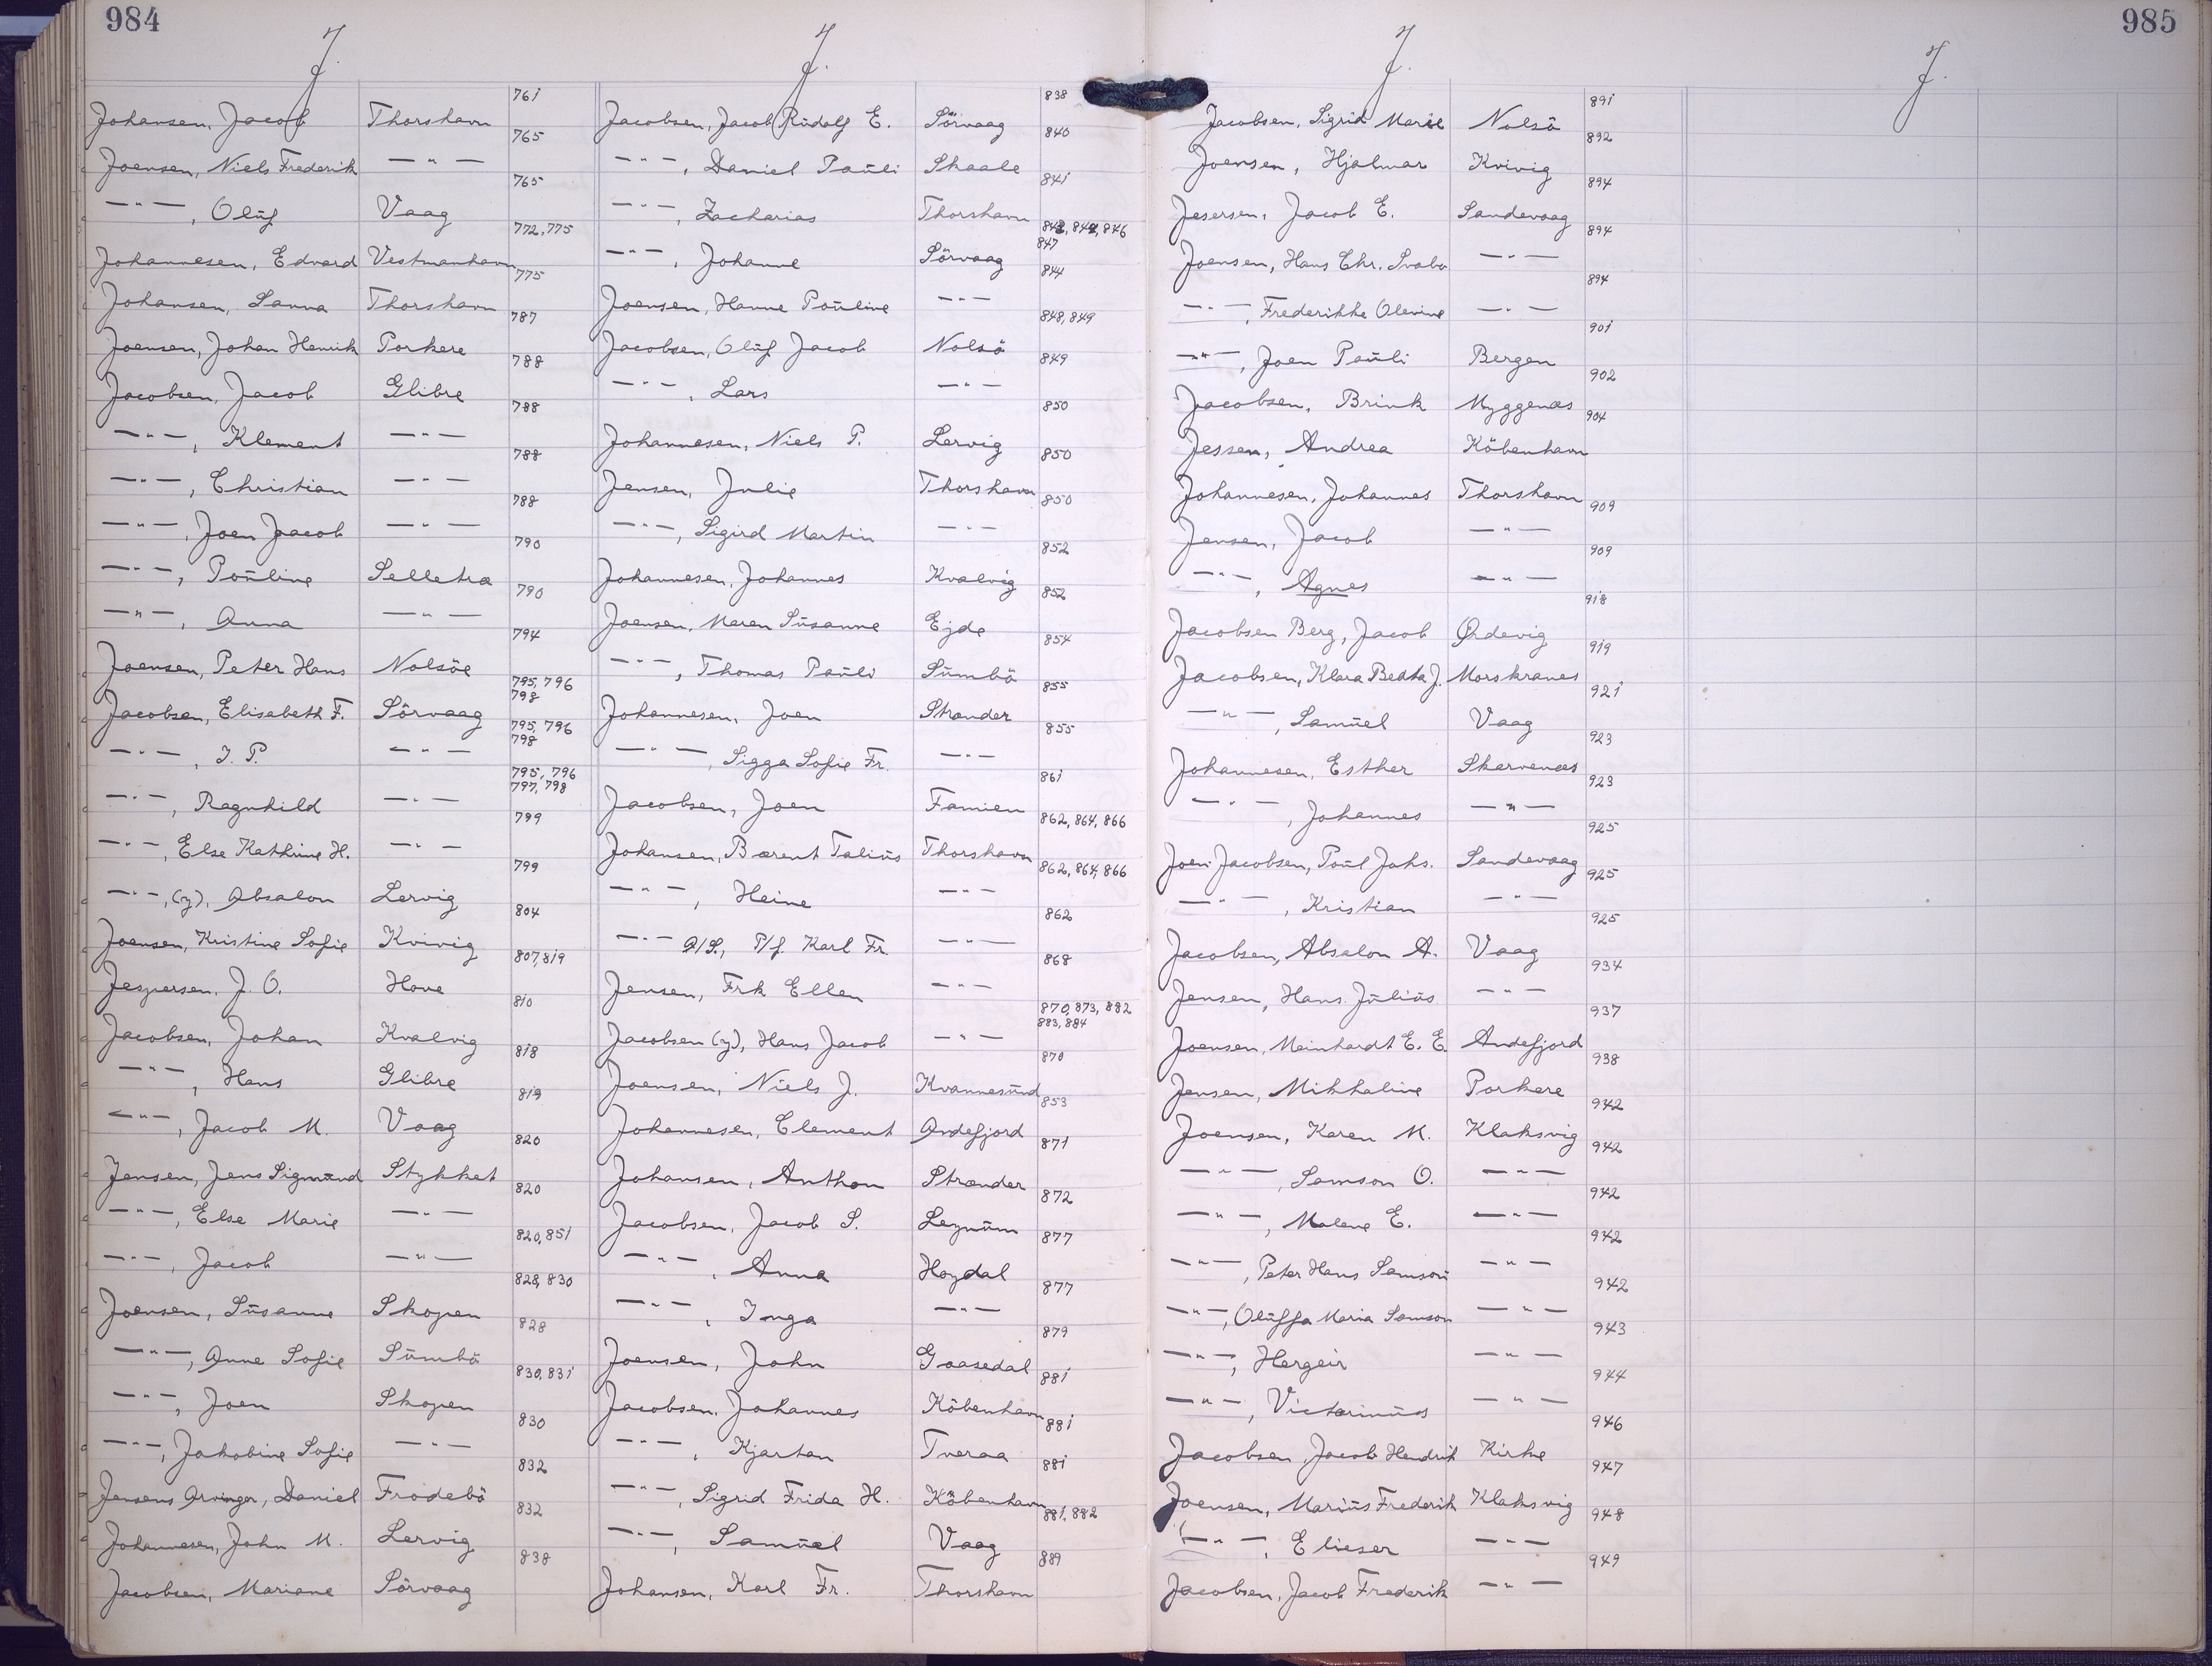 984
J.
Johansen, Jacob Thorshavn 761
Joensen, Niels Frederik —"— 765
—"—, Olüf Vaag 765
Johannesen, Edvard Vestmanhavn 772,775
Johansen, Sanna Thorshavn 775
Joensen, Johan Henrik Porkere 787
Jacobsen, Jacob Glibre 788
—"—, Klement —"— 788
—"—, Christian —"— 788
—"—, Joen Jacob —"— 788
—"—, Poüline Selletræ 790
—"—, Anna —"— 790
Joensen, Peter Hans Nolsöe 794
Jacobsen, Elisabeth F. Sörvaag 795, 796 798
—"—, J. P. —"— 795, 796 798
—"—, Ragnhild —"— 795, 796 797, 798
—"—, Else Kathrine H. —"— 799
—"—,(y), Absalon Lervig 799
Joensen, Kristine Sofie Kvivig 804
Jespersen, J. O. Hove 807,819
Jacobsen, Johan Kvalvig 810
—"—, Hans Glibre 818
—"—, Jacob M. Vaag 819
Jensen, Jens Sigmünd Stykket 820
—"—, Else Marie —"— 820
—"—, Jacob —"— 820,851
Joensen, Süsanne Skopen 828, 830
—"—, Anne Sofie Sümbö 828
—"—, Joen Skopen 830, 831
—"—, Jakobine Sofie —"— 830
Jensens Arvinger, Daniel Frodebö 832
Johannesen, John M. Lervig 832
Jacobsen, Mariane Sörvaag 838
J.
Jacobsen, Jacob Rüdolf E. Sörvaag 838
—"—, Daniel Paüli Skaale 840
—"—, Zacharias Thorshavn 841
—"—, Johanne Sörvaag 842, 844, 846 847
Joensen, Hanne Poüline —"— 844
Jacobsen, Olüf Jacob Nolsö 848, 849
—"—, Lars —"— 849
Johannesen, Niels P. Lervig 850
Jensen, Julie Thorshavn 850
—"—, Sigird Martin —"— 850
Johannesen, Johannes Kvalvig 852
Joensen, Maren Süsanne Ejde 852
—"—, Thomas Paüli Sümbö 854
Johannesen, Joen Strænder 855
—"—, Sigga Sofie Fr. —"— 855
Jacobsen, Joen Famien 861
Johansen, Bærent Taliüs Thorshavn 862, 864, 866
—"—, Heine —"— 862, 864, 866
—"— A/S., P/f. Karl Fr. —"— 862
Jensen, Frk Ellen —"— 868
Jacobsen (y), Hans Jacob —"— 870, 873, 882 883, 884
Joensen, Niels J. Kvannesünd 870
Johannesen, Clement Andefjord 853
Johansen, Anthon Strænder 871
Jacobsen, Jacob S. Leynüm 872
—"—, Anna Hoydal 877
—"—, Inga —"— 877
Joensen, John Gaasedal 879
Jacobsen, Johannes Köbenhavn 881
—"—, Kjartan Tveraa 881
—"—, Sigrid Frida H. Köbenhavn 881
—"—, Samüel Vaag 881, 882
Johansen, Karl Fr. Thorshavn 889
985
J.
Jacobsen, Sigrid Marie Nolsö 891
Joensen, Hjalmar Kvivig 892
Jesersen, Jacob E. Sandevaag 894
Joensen, Hans Chr. Svabo —"— 894
—"—, Frederikke Olevine —"— 894
—"—, Joen Paüli Bergen 901
Jacobsen, Brink Myggenæs 902
Jessen, Andrea Köbenhavn 904
Johannesen, Johannes Thorshavn
Jensen, Jacob —"— 909
—"—, Agnes —"— 909
Jacobsen Berg, Jacob Ördevig 918
Jacobsen, Klara Beata J. Morskranes 919
—"—, Samüel Vaag 921
Johannesen, Esther Skarvenæs 923
—"—, Johannes —"— 923
Joen Jacobsen, Poül Johs. Sandevaag 925
—"—, Kristian —"— 925
Jacobsen, Absalon A. Vaag 925
Jensen, Hans Jüliüs —"— 934
Joensen, Meinhardt E. E. Andefjord 937
Jensen, Mikkaline Porkere 938
Joensen, Karen M. Klaksvig 942
—"—, Samson O. —"— 942
—"—, Malene E. —"— 942
—"—, Peter Hans Samson —"— 942
—"—, Olüffa Maria Samson —"— 942
—"—, Hergeir —"— 943
—"—, Victorinüs —"— 944
Jacobsen, Jacob Hendrik Kirke 946
Joensen, Mariüs Frederik Klaksvig 947
—"—, Elieser —"— 948
Jacobsen, Jacob Frederik —"— 949
J.